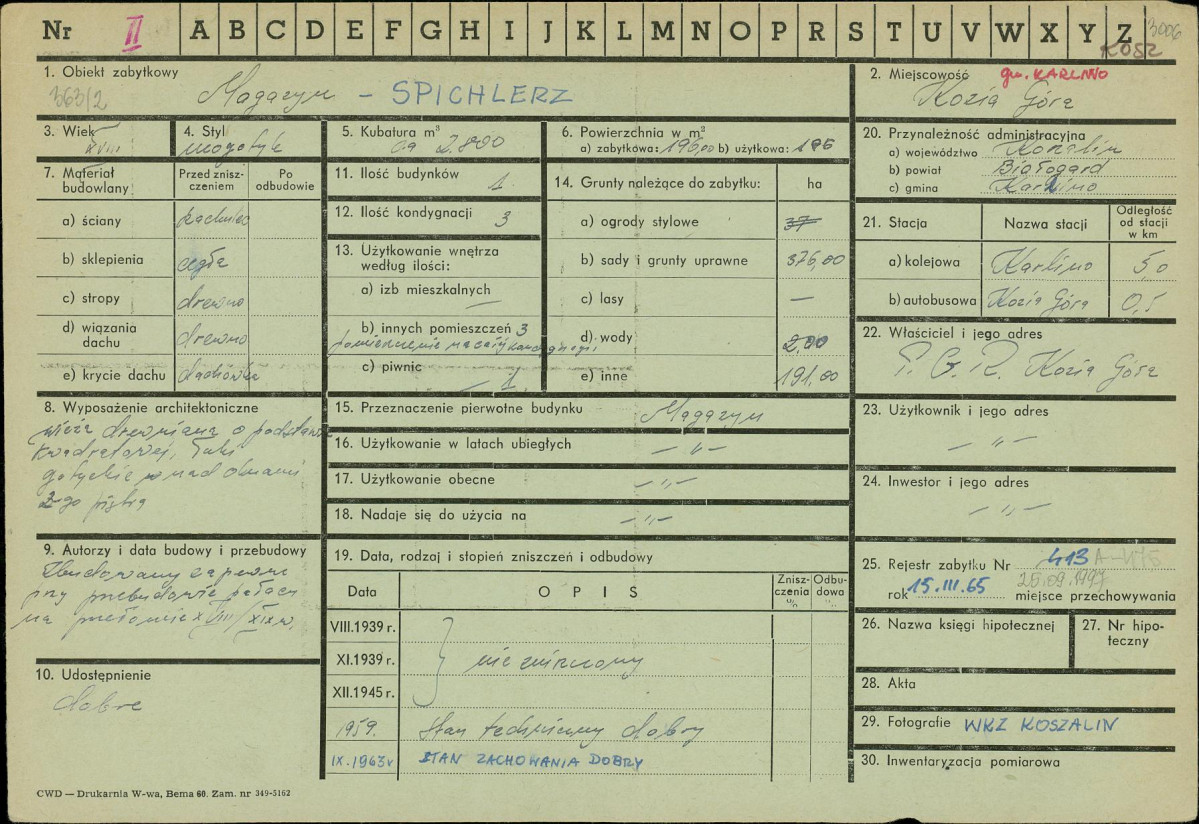 Nr II A B C D E F G H I J K L M N O P R S T U V W X Y Z 3006
KOSZ
1. Obiekt zabytkowy
363/2
Magazyn – SPICHLERZ
2. Miejscowość gm. KARLINO
Kozia Góra
3. Wiek
XVIII
4. Styl
neogotyk
5. Kubatura m³
ca 2.800
6. Powierzchnia w m²
a) zabytkowa: 196,00 b) użytkowa: 196
20. Przynależność administracyjna
a) województwo Koszalin
b) powiat Białogard
c) gmina Karlino
7. Materiał budowlany:
Przed zniszczeniem
Po odbudowie
a) ściany
b) sklepienia cegła
c) stropy drewno
d) wiązania dachu drewno
e) krycie dachu dachówka
11. Ilość budynków 1.
12. Ilość kondygnacji 3
13. Użytkowanie wnętrza
według ilości:
a) izb mieszkalnych —
b) innych pomieszczeń 3
pomieszczenie na całej kondygnacji
c) piwnic – 1
14. Grunty należące do zabytku: ha
a) ogrody stylowe 37
b) sady i grunty uprawne 376,00
c) lasy —
d) wody 2,00
e) inne 191,00
21. Stacja
Nazwa stacji
Odległość od stacji w km
a) kolejowa Karlino 5,0
b) autobusowa Kozia Góra 0,5
22. Właściciel i jego adres
P. G. R. Kozia Góra
8. Wyposażenie architektoniczne
wieża drewniana o podstawie
kwadratowej, łuki
gotyckie ponad oknami
2-go piętra
15. Przeznaczenie pierwotne budynku Magazyn
16. Użytkowanie w latach ubiegłych – " –
17. Użytkowanie obecne – " –
18. Nadaje się do użycia na – " –
23. Użytkownik i jego adres
– " –
24. Inwestor i jego adres
– " –
9. Autorzy i data budowy i przebudowy
Zbudowany zapewne
przy przebudowie pałacu
na przełomie XVIII/XIX w.
10. Udostępnienie
dobre
19. Data, rodzaj i stopień zniszczeń i odbudowy
Data
OPIS
Zniszczenia %
Odbudowa %
VIII.1939 r.
XI.1939 r. nie zniszczony
XII.1945 r.
1959. Stan techniczny dobry
IX.1963 r STAN ZACHOWANIA DOBRY
25. Rejestr zabytku Nr 413
rok 15.III.65 miejsce przechowywania
26. Nazwa księgi hipotecznej
27. Nr hipoteczny
28. Akta
29. Fotografie WKZ KOSZALIN
30. Inwentaryzacja pomiarowa
CWD — Drukarnia W-wa, Bema 60. Zam. nr 349-5162